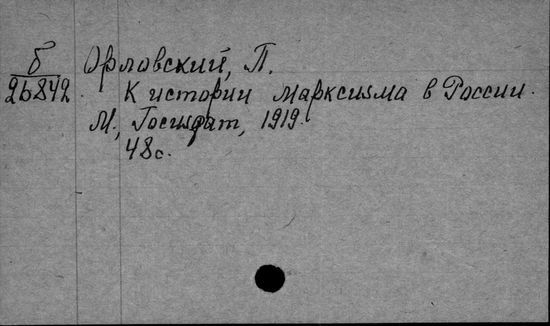 б Орловский, П.
26842 К истории марксизма в России.
М., Госиздат, 1919.
48с.